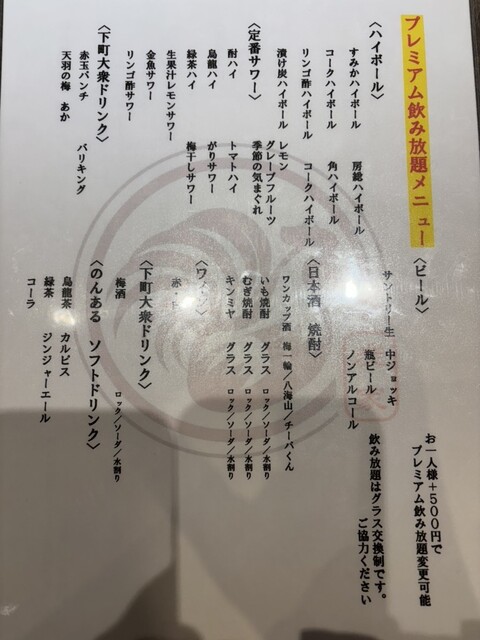 プレミアム飲み放題メニュー
〈ハイボール〉
すみかハイボール　房総ハイボール
コークハイボール　角ハイボール
リンゴ酢ハイボール　コークハイボール
漬け炭ハイボール
〈定番サワー〉
レモン
グレープフルーツ
季節の気まぐれ
酎ハイ　トマトハイ
烏龍ハイ　がりサワー
緑茶ハイ　梅干しサワー
生果汁レモンサワー
金魚サワー
リンゴ酢サワー
〈下町大衆ドリンク〉
赤玉パンチ　バリキング
天羽の梅　あか
〈ビール〉
サントリー生　中ジョッキ
瓶ビール
ノンアルコール
〈日本酒　焼酎〉
ワンカップ酒　梅一輪／八海山／チーバくん
いも焼酎　グラス　ロック／ソーダ／水割り
むぎ焼酎　グラス　ロック／ソーダ／水割り
キンミヤ　グラス　ロック／ソーダ／水割り
〈ワイン〉
赤・白
〈下町大衆ドリンク〉
梅酒　ロック／ソーダ／水割り
〈のんある　ソフトドリンク〉
烏龍茶　カルピス
緑茶　ジンジャーエール
コーラ
お一人様＋５００円で
プレミアム飲み放題変更可能
飲み放題はグラス交換制です。
ご協力ください